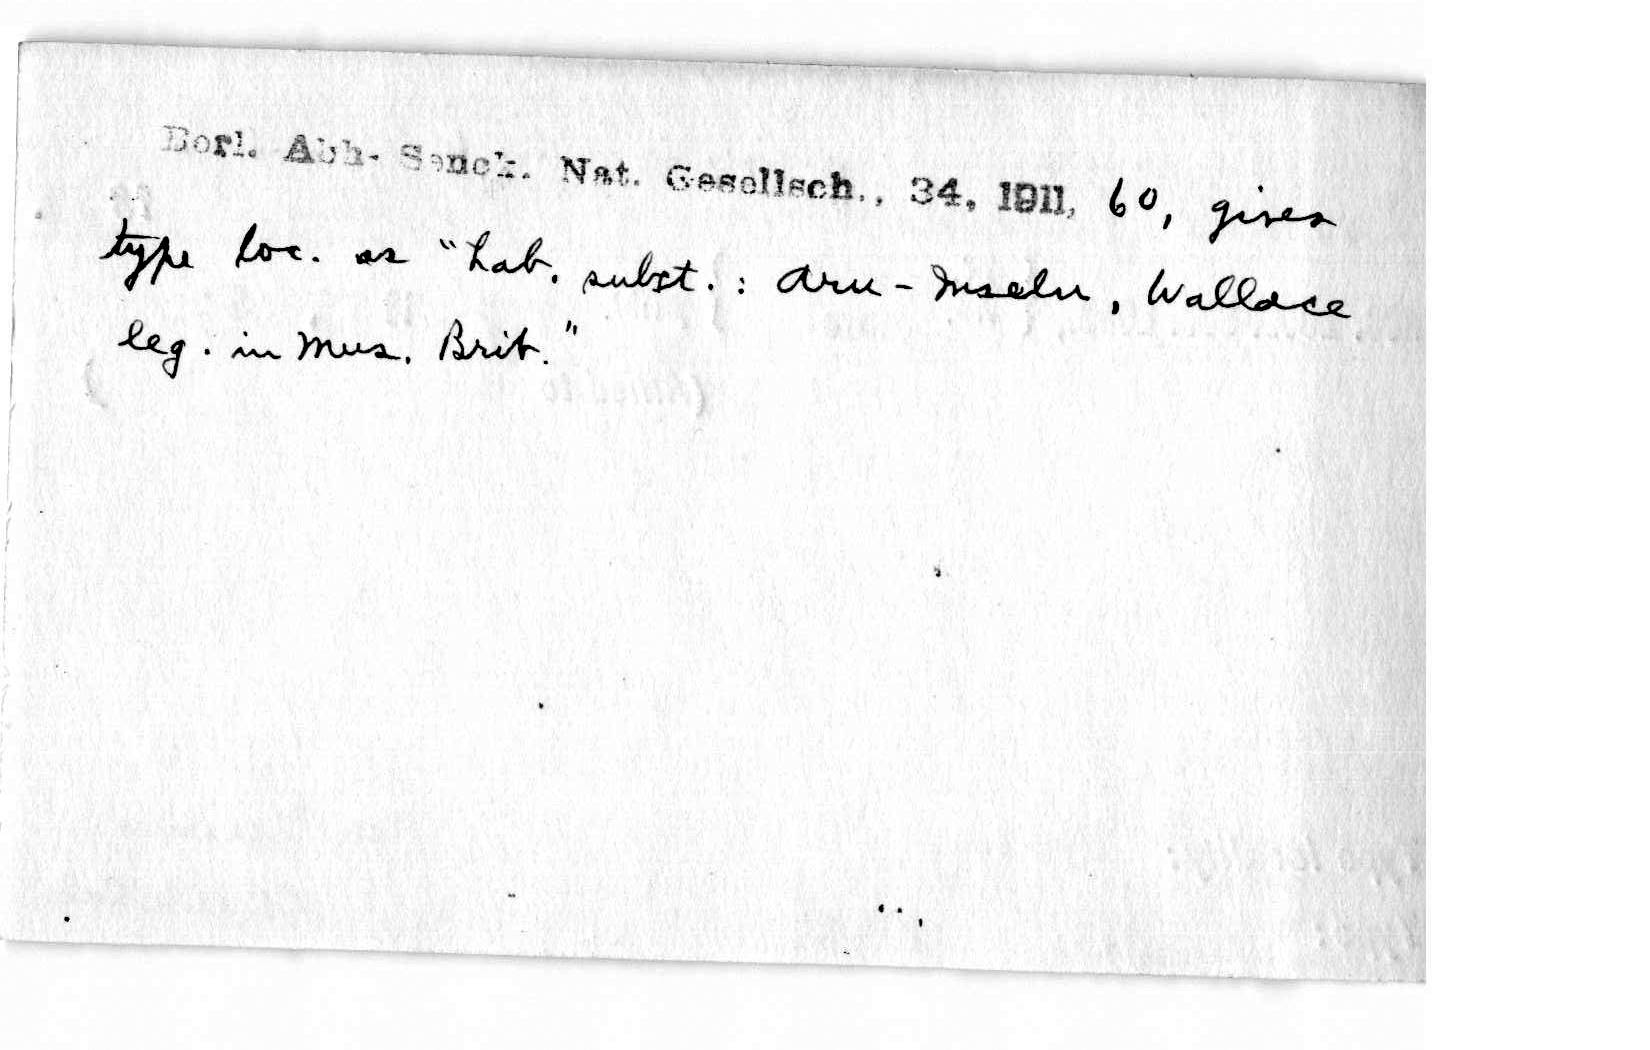 Berl. Abh. Senck. Nat. Gesellsch., 34, 1911, 60, gives
type loc. as "hab. subst.: Aru-Inseln, Wallace
leg. in Mus. Brit."